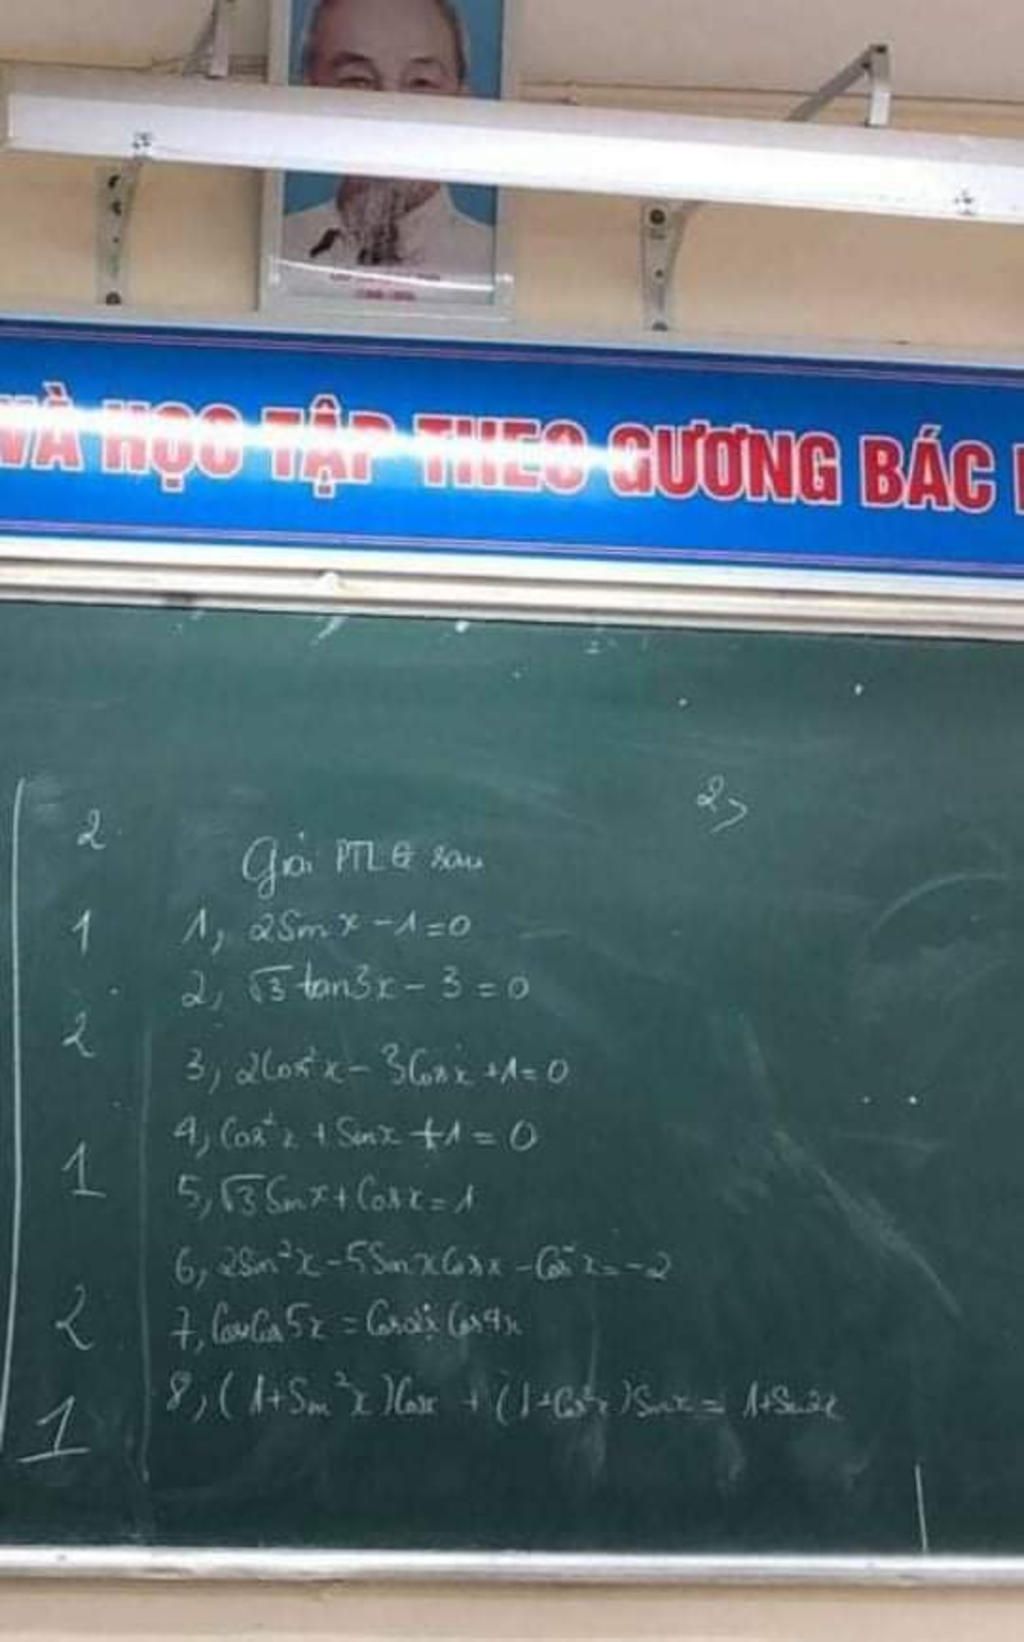 VÀ HỌC TẬP THEO GƯƠNG BÁC
2>
2
Giải PTLG sau
1
1, 2Sinx - 1 = 0
2, √3 tan3x - 3 = 0
2
3, 2Cos²x - 3Cosx + 1 = 0
4, Cos²x + Sinx + 1 = 0
1
5, √3 Sinx + Cosx = 1
6, 2Sin²x - 5SinxCosx - Cos²x = -2
2
7, CosxCos5x = Cos2x Cos4x
8, (1 + Sin²x)Cosx + (1 + Cos²x)Sinx = 1 + Sin2x
1